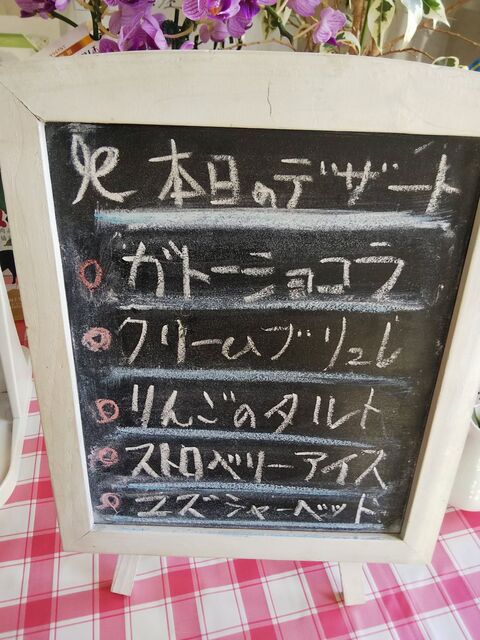 本日のデザート
ガトーショコラ
クリームブリュレ
りんごのタルト
ストロベリーアイス
ユズシャーベット